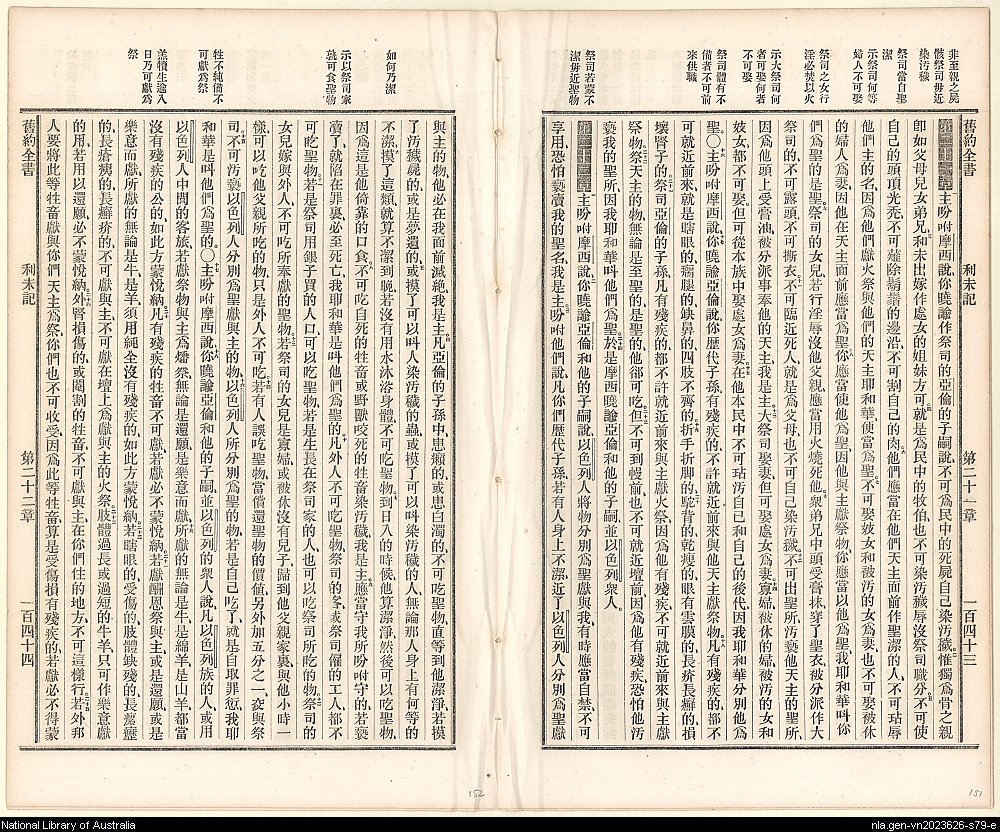 非至親之屍
骸祭司毋近
染污穢
祭司當自聖
潔
示祭司何等
婦人不可娶
祭司之女行
淫必焚以火
示大祭司何
者可娶何者
不可娶
祭司體有不
備者不可前
來供職
祭司若蒙不
潔毋近聖物
舊約全書
利未記
第二十一章
一百四十三
第二十一章主吩咐摩西說你曉諭作祭司的亞倫的子嗣說不可爲民中的死屍自己染污穢惟獨爲骨之親
卽如父母兒女弟兄和未出嫁作處女的姐妹方可就是爲民中的牧伯也不可染污穢辱沒祭司職分不可使
自己的頭頂光禿不可薙除鬍鬚的邊沿不可割自己的肉他們應當在他們天主面前作聖潔的人不可玷辱
他們主的名因爲他們獻火祭與他們的天主耶和華便當爲聖不可娶妓女和被污的女爲妻也不可娶被休
的婦人爲妻因他在天主面前應當爲聖你應當使他爲聖因他與主獻祭物你應當以他爲聖我耶和華叫你
們爲聖的是聖祭司的女兒若行淫辱沒他父親應當用火燒死他衆弟兄中頭受膏抹穿了聖衣被分派作大
祭司的不可露頭不可撕衣不可臨近死人就是爲父母也不可自己染污穢不可出聖所污褻他天主的聖所
因爲他頭上受膏油被分派事奉他的天主我是主大祭司娶妻但可娶處女爲妻寡婦被休的婦被污的女和
妓女都不可娶但可從本族中娶處女爲妻在他本民中不可玷污自已和自己的後代因我耶和華分別他爲
聖〇主吩咐摩西說你曉諭亞倫說你歷代子孫有殘疾的不許就近前來與他天主獻祭物凡有殘疾的都不
可就近前來就是瞎眼的瘸腿的缺鼻的四肢不齊的折手折脚的駝背的乾瘦的眼有雲膜的長疥長癬的損
壞腎子的祭司亞倫的子孫凡有殘疾的都不許就近前來與主獻火祭因爲他有殘疾不可就近前來與主獻
祭物祭天主的物無論是至聖的是聖的他都可吃但不可到幔前也不可就近壇前因爲他有殘疾恐怕他污
褻我的聖所因我耶和華叫他們爲聖於是摩西曉諭亞倫和他的子嗣並以色列衆人
第二十二章主吩咐摩西說你曉諭亞倫和他的子嗣說以色列人將物分別爲聖獻與我有時應當自禁不可
享用恐怕褻瀆我的聖名我是主吩咐他們說凡你們歷代子孫若有人身上不潔近了以色列人分別爲聖獻
151
如何乃潔
示以祭司家
孰可食聖物
牲不純備不
可獻爲祭
羔犢生逾入
日乃可獻爲
祭
與主的物他必在我面前滅絶我是主凡亞倫的子孫中患癩的或患白濁的不可吃聖物直等到他潔淨若摸
了污穢屍的或是夢遺的或摸了可以叫人染污穢的蟲或摸了可以叫染污穢的人無論那人身上有何等的
不潔摸了這類就算不潔到晚若沒有用水沐浴身體不可吃聖物到日入的時候他算潔淨然後可以吃聖物
因爲這是他倚靠的口食不可吃自死的牲畜或野獸咬死的牲畜染污穢我是主應當守我所吩咐守的若褻
瀆了就陷在罪裏必至死亡我耶和華是叫他們爲聖的凡外人不可吃聖物祭司的客或祭司僱的工人都不
可吃聖物若是祭司用銀子買的人口可以吃聖物若是生長在祭司家的人也可以吃祭司所吃的物祭司的
女兒嫁與外人不可吃所奉獻的聖物若祭司的女兒是寡婦或被休沒有兒子歸到他父親家裏與他小時一
樣可以吃他父親所吃的物只是外人不可吃若有人誤吃聖物當償還聖物的價値另外加五分之一交與祭
司不可污褻以色列人分別爲聖獻與主的物以色列人所分別爲聖的物若是自己吃了就是自取罪愆我耶
和華是叫他們爲聖的〇主吩咐摩西說你曉諭亞倫和他的子嗣並以色列的衆人說凡以色列族的人或用
以色列人中間的客旅若獻祭物與主爲燔祭無論是還願是樂意而獻所獻的無論是牛是綿羊是山羊都當
沒有殘疾的公的如此方蒙悅納凡有殘疾的牲畜不可獻若獻必不蒙悅納若獻酬恩祭與主或是還願或是
樂意而獻所獻的無論是牛是羊須用純全沒有殘疾的如此方蒙悅納若瞎眼的受傷的肢體缺殘的長癰癧
的長瘡痍的長癬疥的不可獻與主不可獻在壇上爲獻與主的火祭肢體過長或過短的牛羊只可作樂意獻
的用若用以還願必不蒙悅納外腎損傷的或閹割的牲畜不可獻與主在你們住的地方不可這樣行若外邦
人要將此等牲畜獻與你們天主爲祭你們也不可收受因爲此等牲畜算是受傷損有殘疾的若獻必不得蒙
舊約全書
利未記
第二十二章
一百四十四
152
National Library of Australia
nla.gen-vn2023626-s79-e